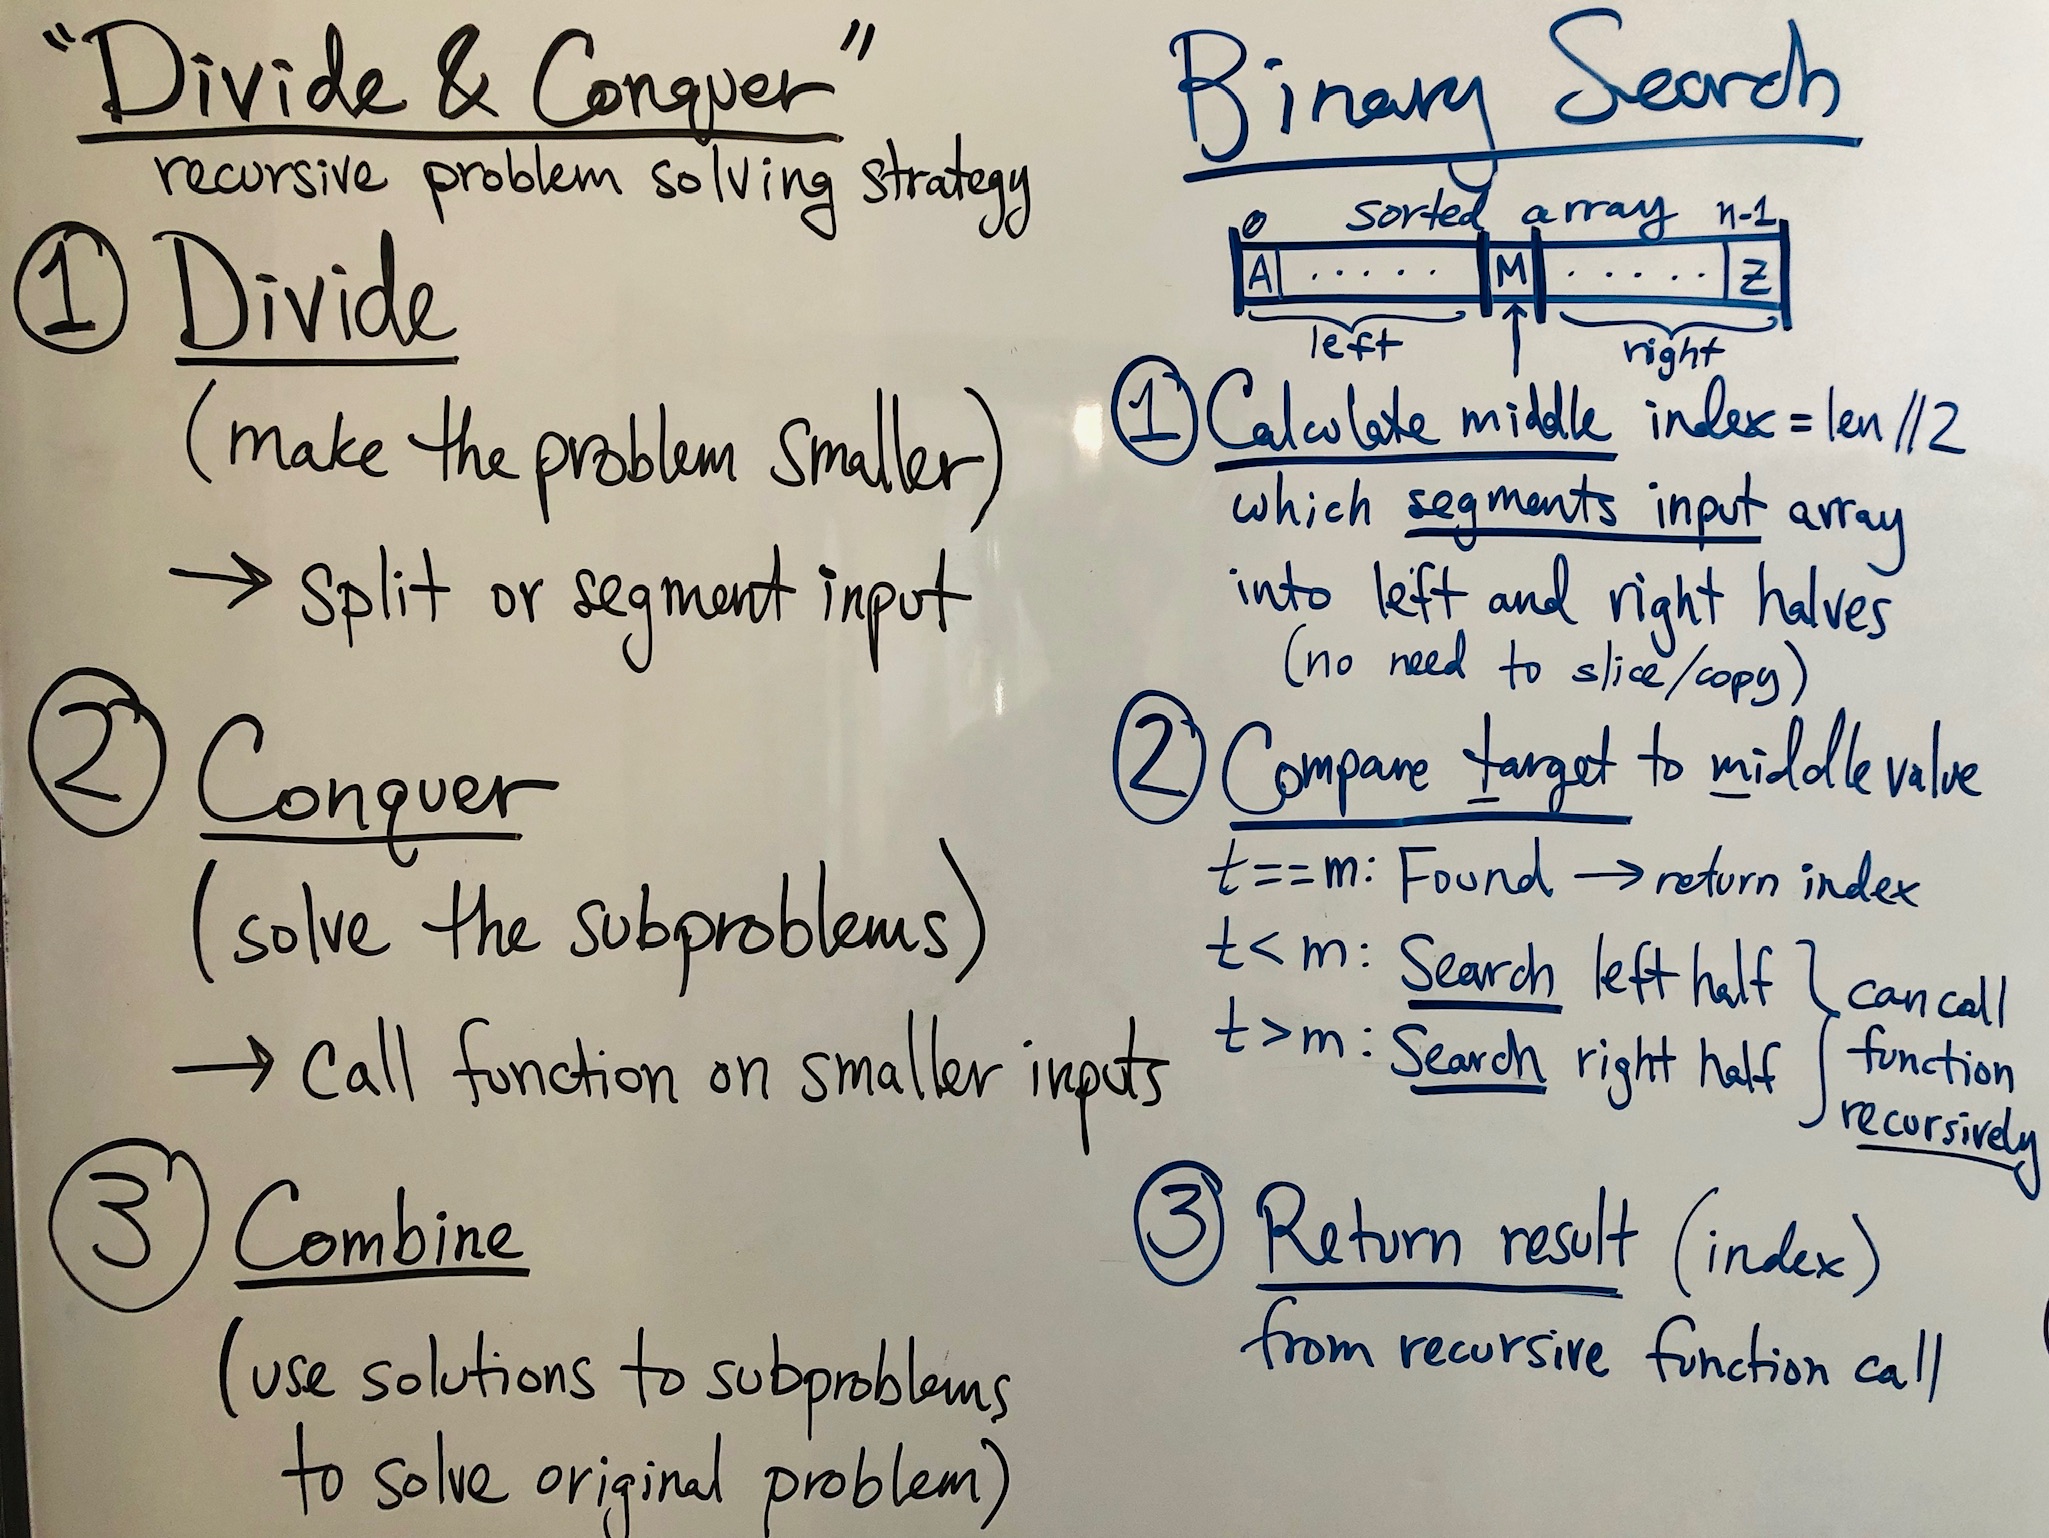 "Divide & Conquer"
recursive problem solving strategy
① Divide
(make the problem smaller)
→ split or segment input
② Conquer
(solve the subproblems)
→ call function on smaller inputs
③ Combine
(use solutions to subproblems
to solve original problem)
Binary Search
0 sorted array n-1
A ..... M ..... Z
left right
① Calculate middle index = len//2
which segments input array
into left and right halves
(no need to slice/copy)
② Compare target to middle value
t==m: Found → return index
t<m: Search left half
t>m: Search right half
can call
function
recursively
③ Return result (index)
from recursive function call